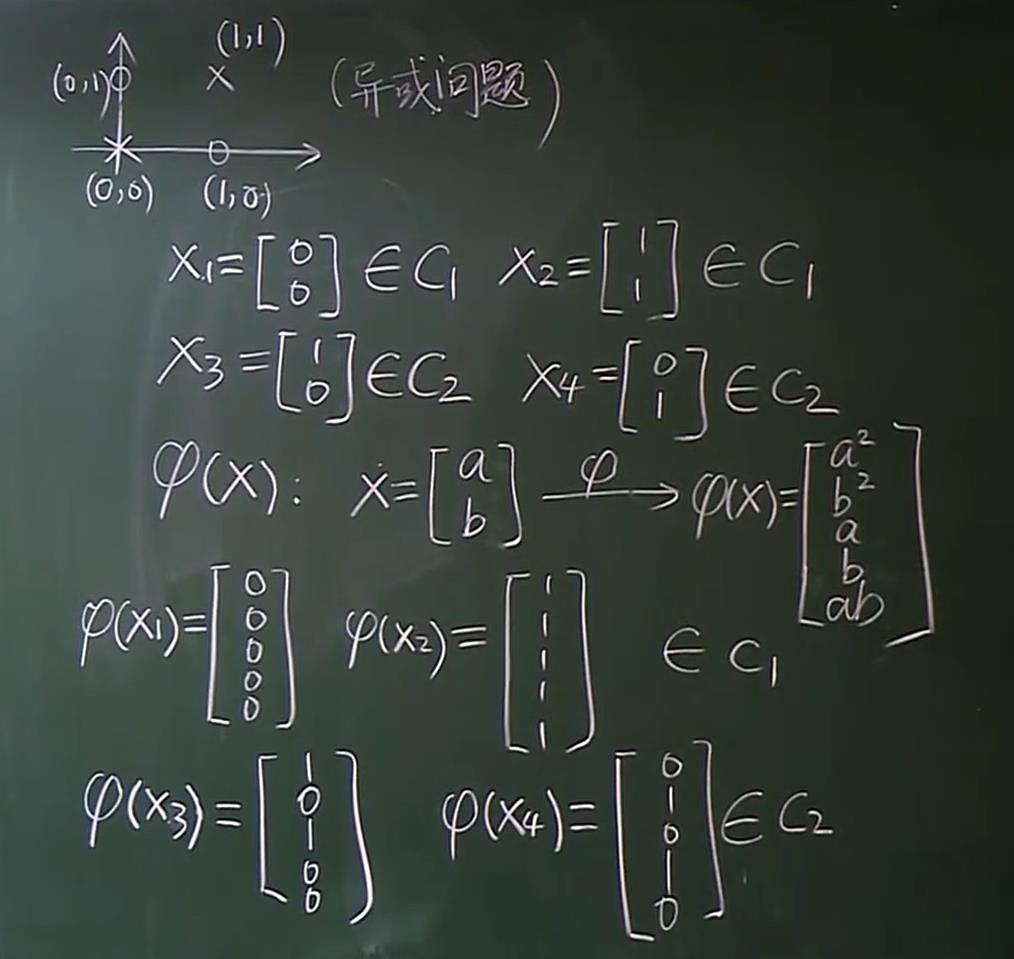 (1,1)
(0,1) (异或问题)
(0,0) (1,0)
X₁=[0 0] ∈C₁ X₂=[1 1] ∈C₁
X₃=[1 0] ∈C₂ X₄=[0 1] ∈C₂
φ(X): X=[a b] φ→ φ(X)=[a² b² a b ab]
φ(X₁)=[0 0 0 0 0] φ(X₂)=[1 1 1 1 1] ∈C₁
φ(X₃)=[1 0 1 0 0] φ(X₄)=[0 1 0 1 0] ∈C₂